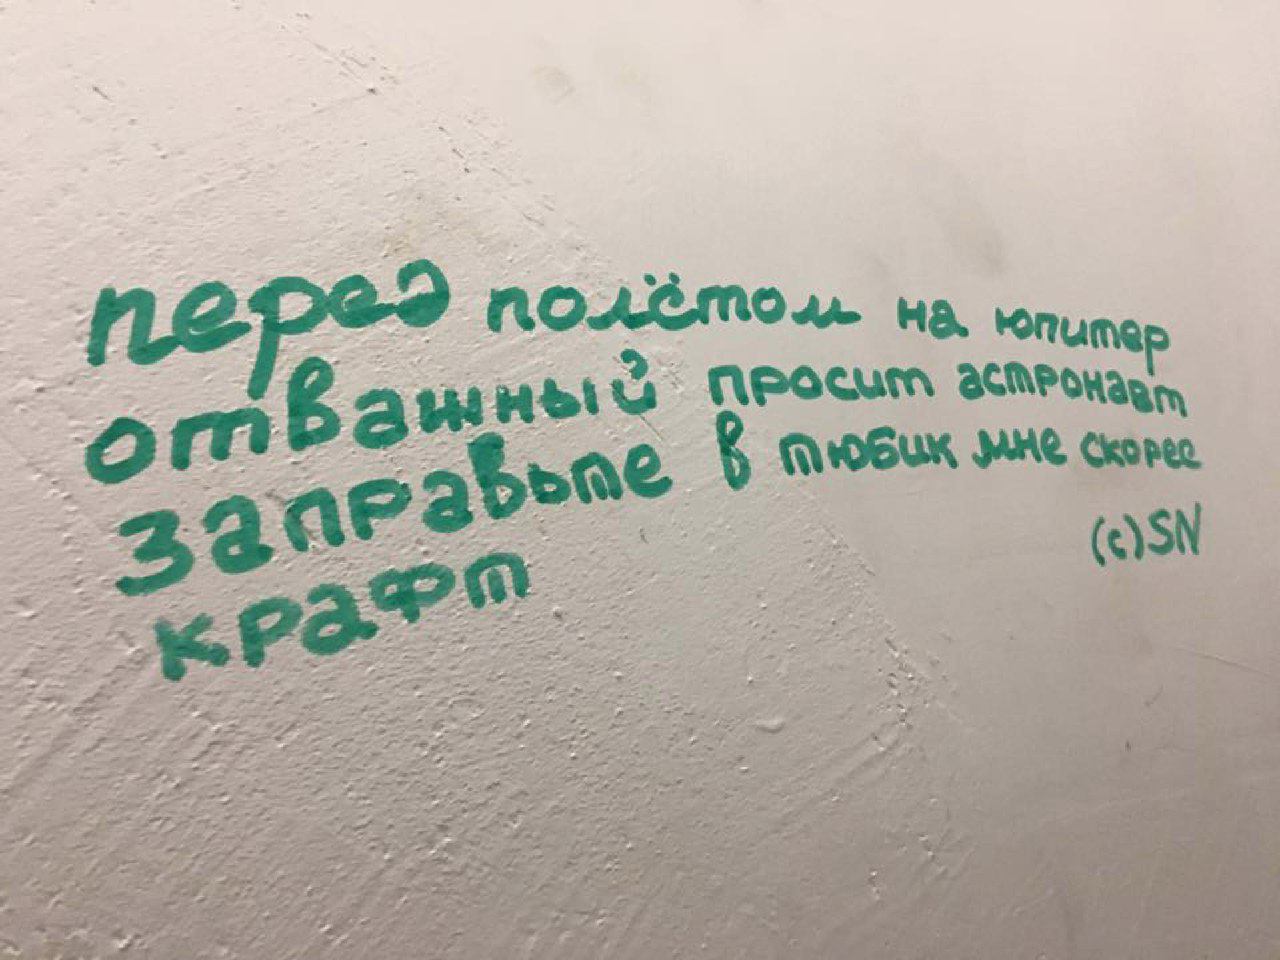 перед полётом на юпитер
отважный просит астронавт
заправьте в тюбик мне скорее
крафт
(c) SN